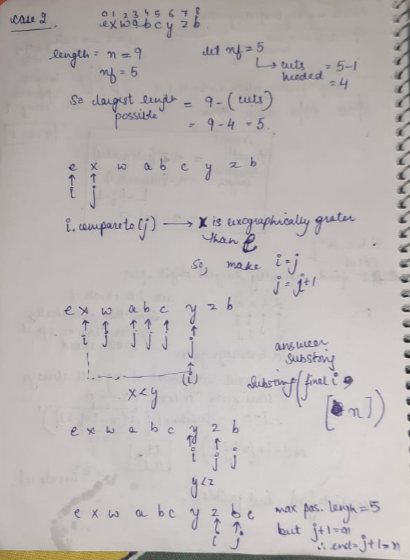 case 2.
0 1 2 3 4 5 6 7 8
e x w a b c y z b
length = n = 9
nf = 5
let nf = 5
↳ cuts needed = 5-1
= 4
So largest length possible = 9 - (cuts)
= 9 - 4 = 5.
e x w a b c y z b
↑ ↑
i j
i.compareto(j) → x is lexographically grater
than e
So, make i = j
j = j+1
e x w a b c y z b
↑ ↑ ↑ ↑ ↑ ↑
i j j j j j
(i)
x < y
answer
substring
substring (final i,
[n])
e x w a b c y z b
↑ ↑ ↑
i j j
y < z
e x w a b c y z b
↑ ↑
i j
max pos. length = 5
but j+1 = n
∴ end = j+1 = n